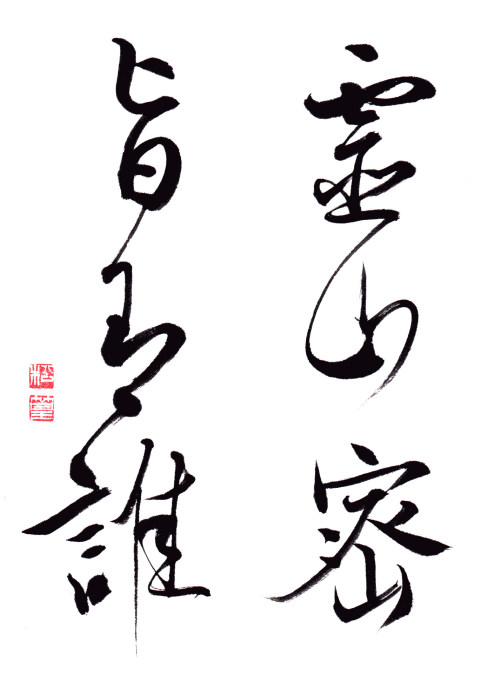 靈山密
旨誰